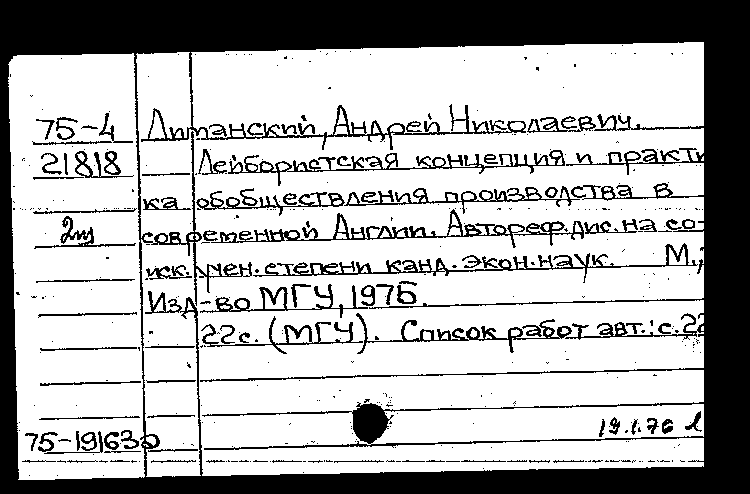 75-4 Литанский, Андрей Николаевич.
21818 Лейбористская концепция и практи
ка обобществления производства в
2т современной Англии. Автореф.дис.на со-
иск.учен.степени канд.экон.наук. М.,
Изд-во МГУ, 1975.
22с. (МГУ). Список работ авт.: с.22
75-19163
19.1.76